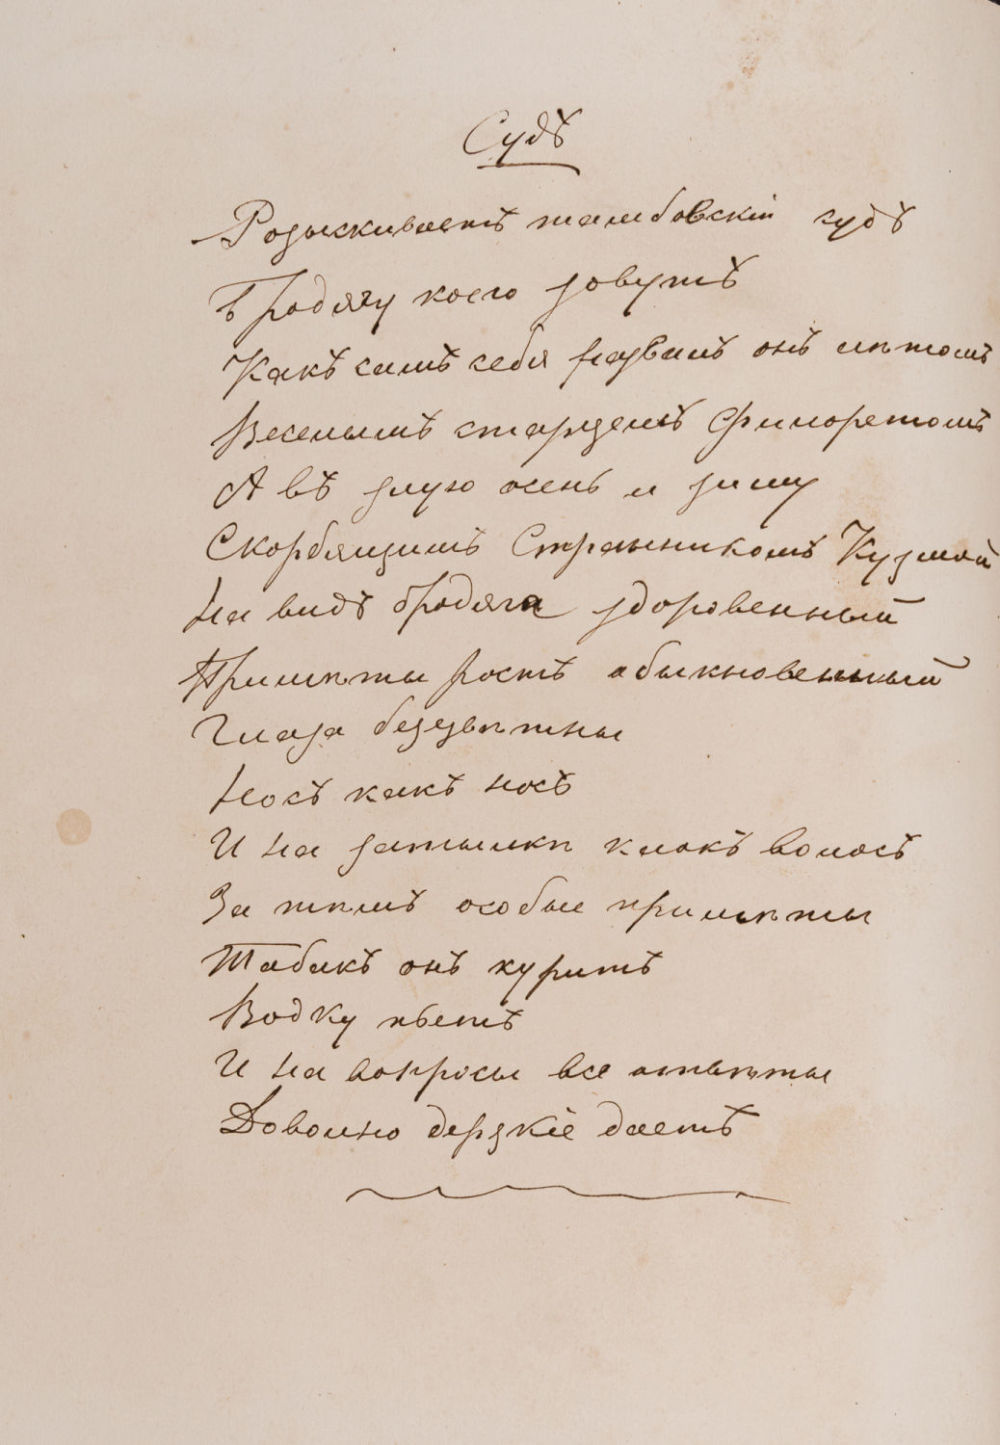 Судъ
Розыскиваетъ тамбовскій судъ
Бродягу коего зовутъ
Какъ самъ себя назвалъ онъ лѣтомъ
Веселымъ старцемъ Филоретомъ
А въ злую осень и зиму
Скорбящимъ Странникомъ Кузмой
На видъ бродяга здоровенный
Примѣты ростъ обыкновенный
Глаза безцвѣтны
Носъ какъ носъ
И на затылкѣ клокъ волосъ
За тѣмъ особые примѣты
Табакъ онъ куритъ
Водку пьетъ
И на вопросы все отвѣты
Доволно дерзкіе даетъ